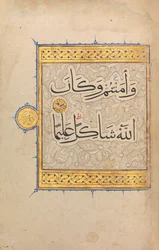 وَآمَنتُمْ وَكَانَ
اللَّهُ شَاكِرًا عَلِيمًا